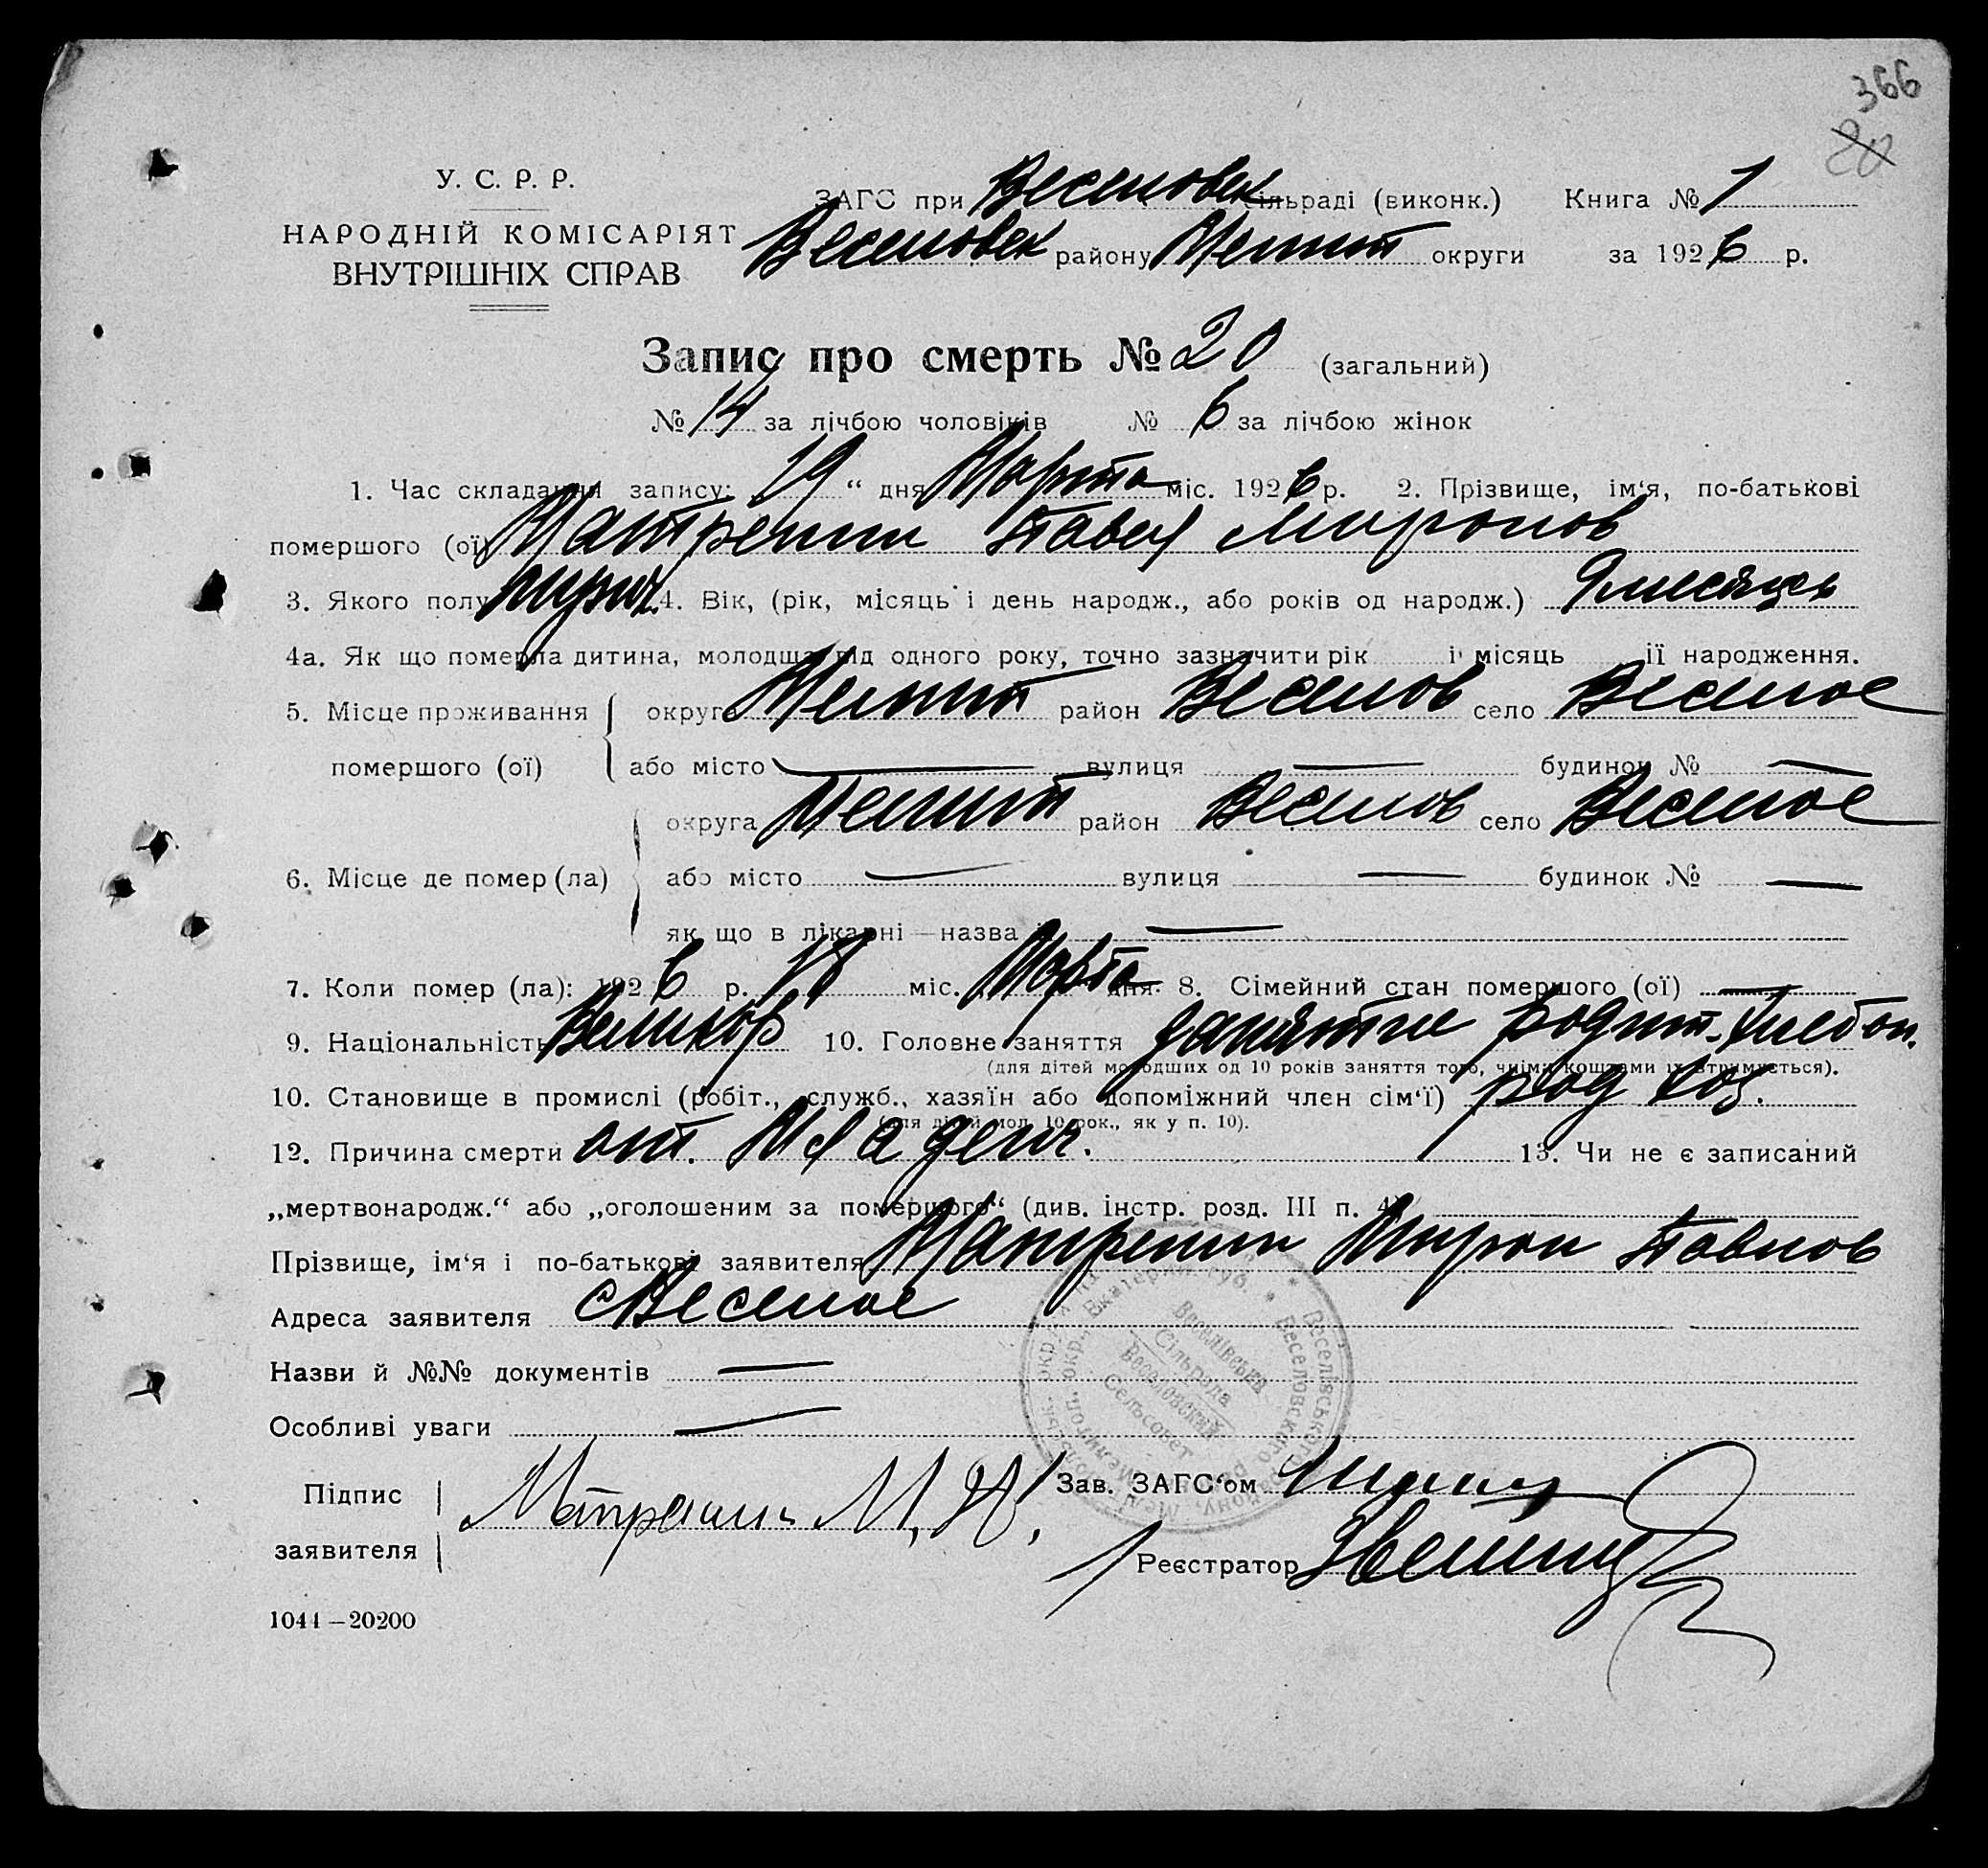 366
20
У. С. Р. Р.
НАРОДНІЙ КОМІСАРІЯТ
ВНУТРІШНІХ СПРАВ
ЗАГС при Веселовск сільраді (виконк.) Книга № 1
Веселовск району Мелит округи за 1926 р.
Запис про смерть № 20 (загальний)
№ 14 за лічбою чоловіків № 6 за лічбою жінок
1. Час складання запису: 19 “ дня Марта міс. 1926 р. 2. Прізвище, ім‘я, по-батькові
помершого (ої) Матренин Павел Миронов
3. Якого полу мужск. 4. Вік, (рік, місяць і день народж., або років од народж.) 9 месяцев
4а. Як що померла дитина, молодша від одного року, точно зазначити рік і місяць її народження.
5. Місце проживання округа Мелит район Веселов село Веселое
помершого (ої) або місто — вулиця — будинок № —
округа Мелит район Веселов село Веселое
6. Місце де помер (ла) або місто — вулиця — будинок № —
як що в лікарні — назва —
7. Коли помер (ла): 1926 р. 18 міс. Марта дня. 8. Сімейний стан помершого (ої) —
9. Національність Великор 10. Головне заняття занятие родит. хлебоп.
(для дітей молодших од 10 років заняття того, чиїми коштами їх втримується).
10. Становище в промислі (робіт., служб., хазяїн або допоміжний член сім‘ї) род хоз.
(для дітей мол. 10 рок., як у п. 10).
12. Причина смерти от. Младенч. 13. Чи не є записаний
„мертвонародж.“ або „оголошеним за помершого“ (див. інстр. розд. III п. 4)
Прізвище, ім‘я і по-батькові заявителя Матренин Мирон Павлов
Адреса заявителя с Веселое
Назви й №№ документів —
Особливі уваги —
Веселівська
Сільрада
Веселовский
Сельсовет
Підпис
заявителя
Зав. ЗАГС‘ом
Реєстратор
1044—20200